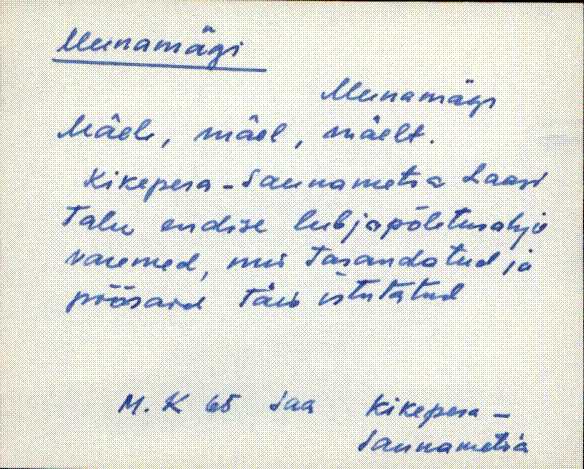 Munamägi
Munamägi
Mäele, mäel, mäelt.
Kikepera-Saunametsa Laasi
talu endise lubjapõletusahju
varemed, mis tasandatud ja
põõsaid täis istutatud
M. K 65 Saa Kikepera-
Saunametsa